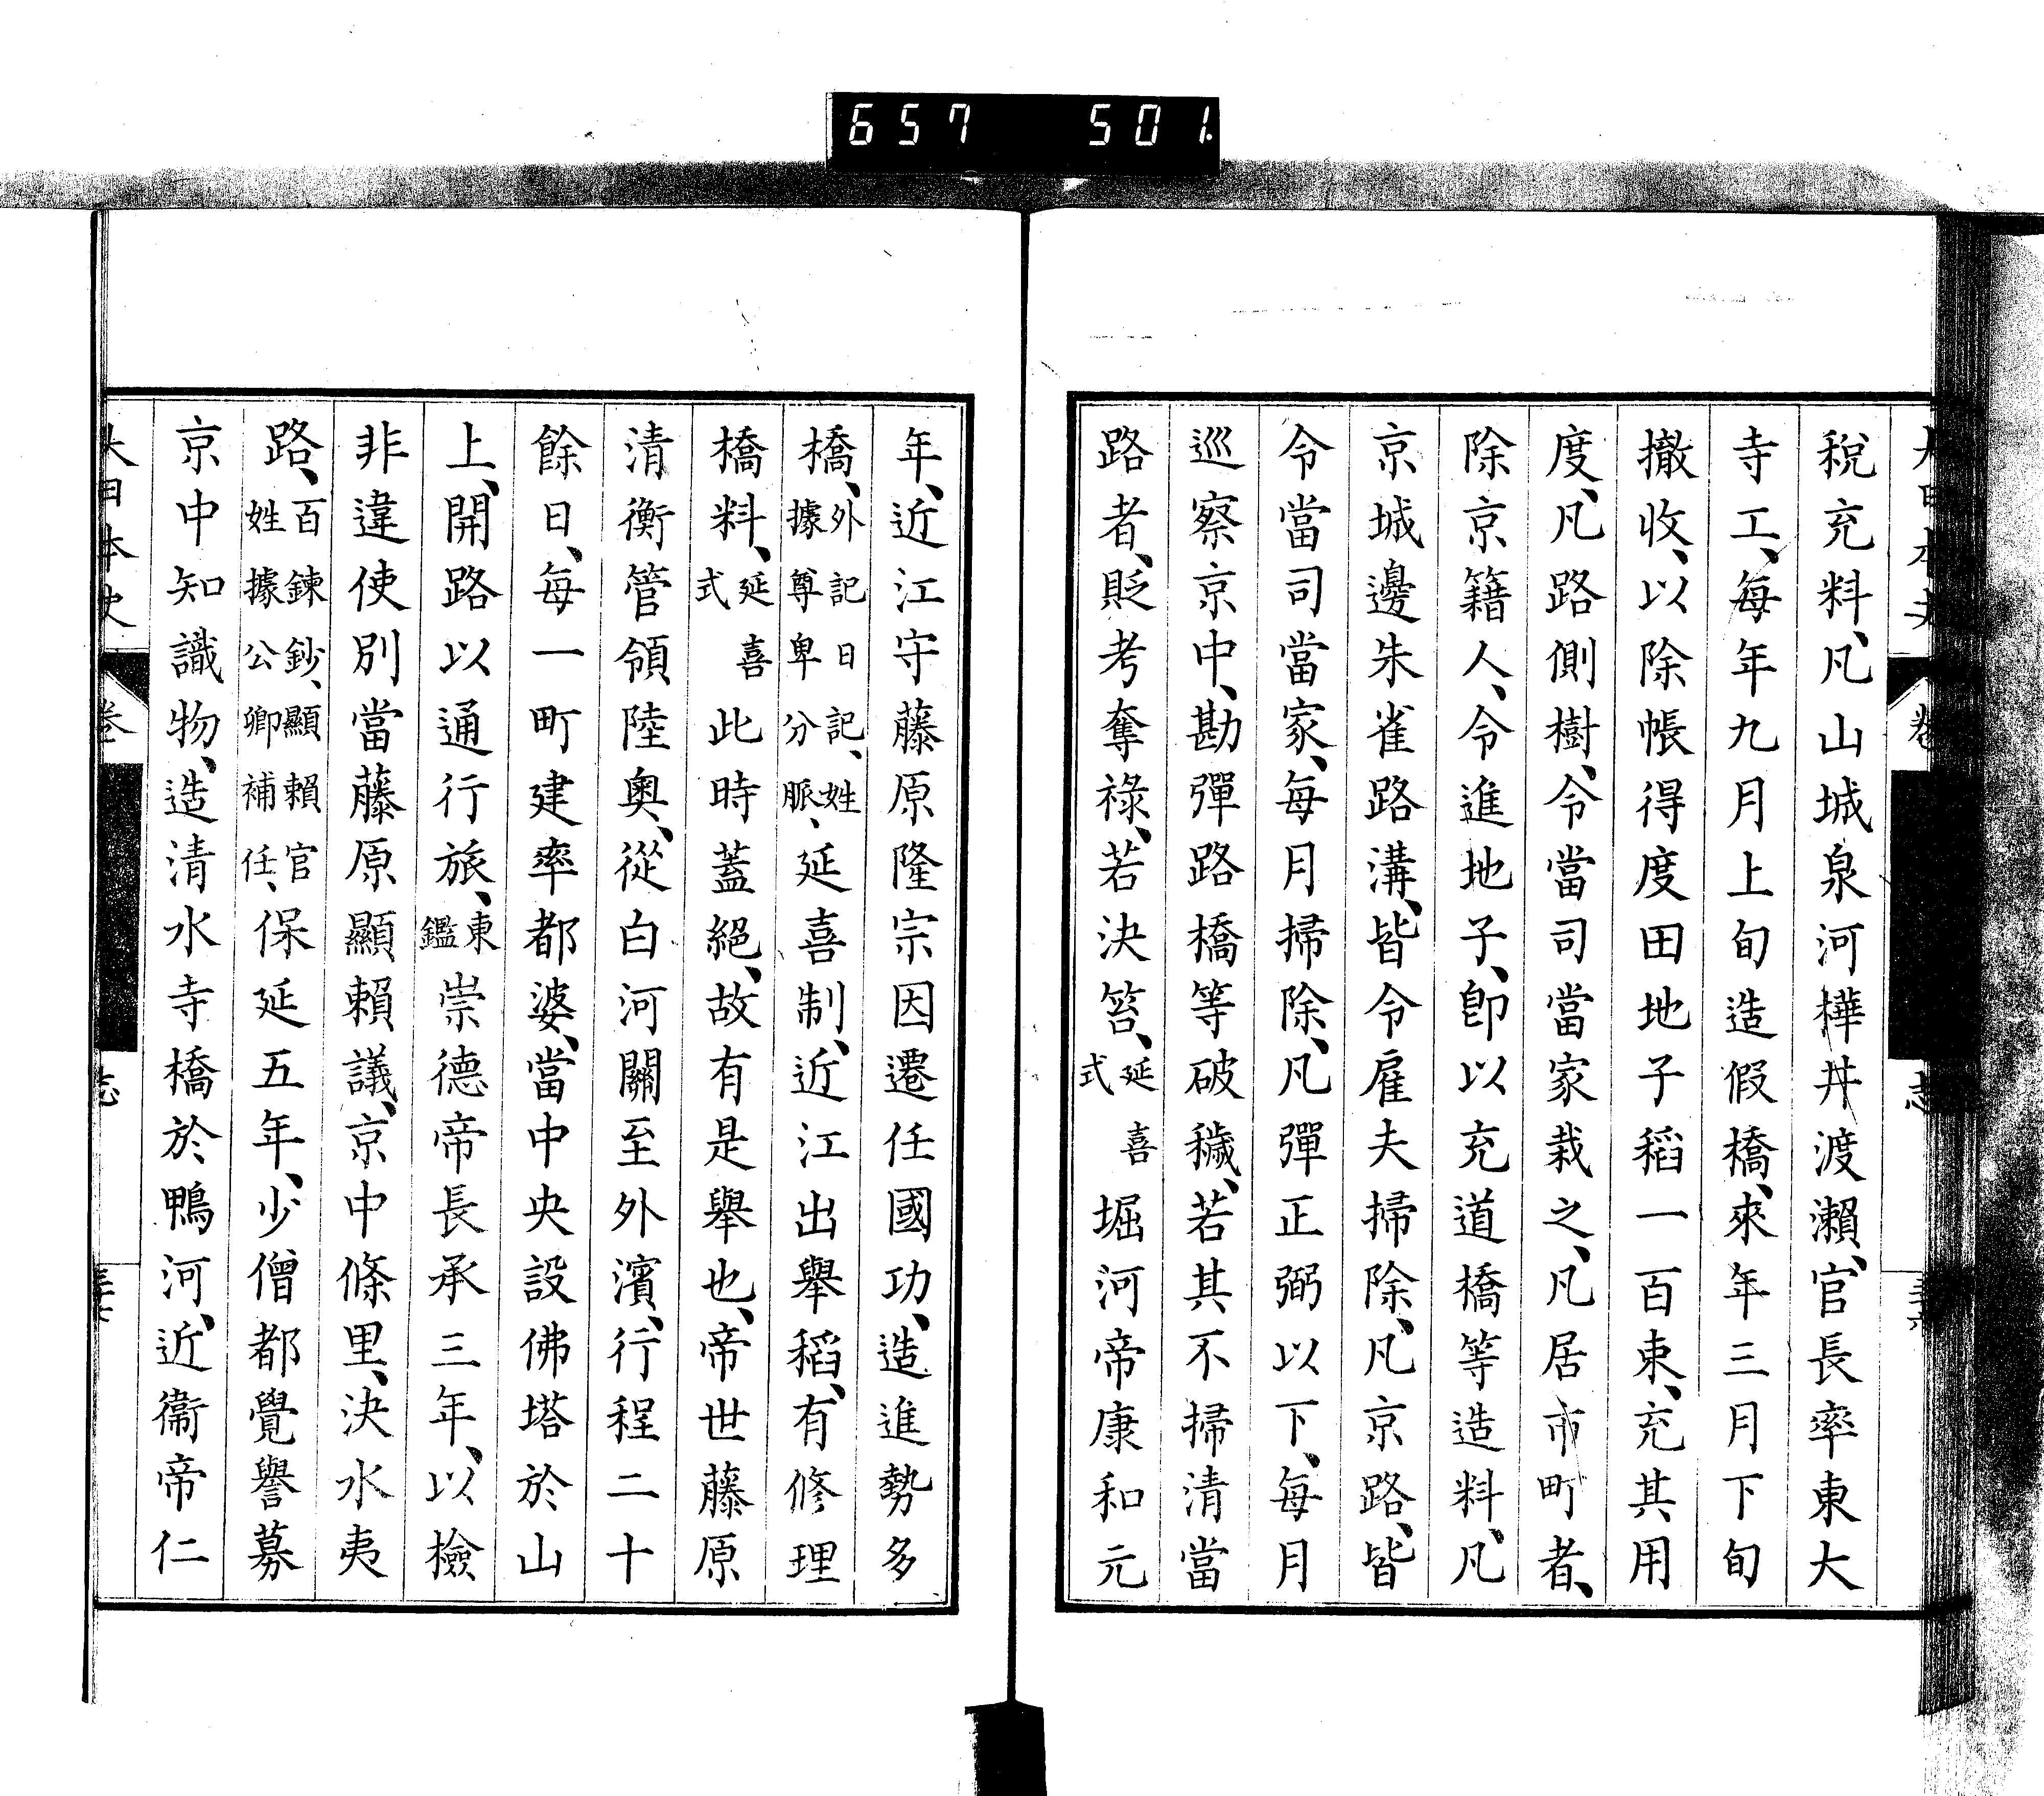 657 501
税充料、凡山城泉河樺井渡瀬、官長率東大
寺工、毎年九月上旬造假橋、來年三月下旬
撤收、以除帳得度田地子稻一百束、充其用
度、凡路側樹、令當司當家栽之、凡居市町者、
除京籍人、令進地子、卽以充道橋等造料、凡
京城邊朱雀路溝、皆令雇夫掃除、凡京路、皆
令當司當家、毎月掃除、凡彈正弼以下、毎月
巡察京中、勘彈路橋等破穢、若其不掃清當
路者、貶考奪祿、若決笞、延喜式堀河帝康和元
年、近江守藤原隆宗因遷任國功、造進勢多
橋、外記日記、姓據尊卑分脈、延喜制、近江出擧稻、有修理
橋料、延喜式此時蓋絕、故有是擧也、帝世藤原
清衡管領陸奧、從白河關至外濱、行程二十
餘日、毎一町建率都婆、當中央設佛塔於山
上、開路以通行旅、東鑑崇德帝長承三年、以檢
非違使別當藤原顯賴議、京中條里、決水夷
路、百鍊鈔、顯賴官姓據公卿補任、保延五年、少僧都覺譽募
京中知識物、造清水寺橋於鴨河、近衞帝仁
大日本史 卷 志